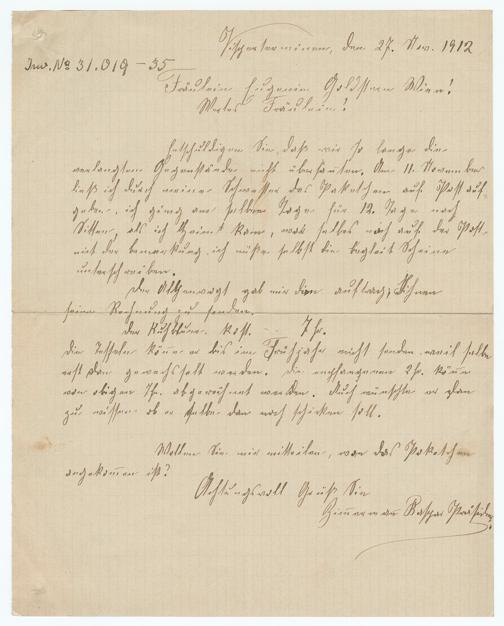 Visperterminen, den 27. Nov. 1912
Inv. No 31.019 – 35
Fräulein Eugenie Goldstern Wien!
Wertes Fräulein!
Entschuldigen Sie, daß wir so lange die
verlangten Gegenstände nicht übersandten. Am 11. November
ließ ich durch meine Schwester das Paketchen auf Post auf-
geben, ich ging am selben Tage für 12 Tage nach
Sitten, als ich heimt kam, war selbes noch auf der Post
mit der bemerkung, ich müße selbst die begleit Scheine
unterschreiben.
Der gab mir den auftrag, Ihnen
seine Rechnung zu senden.
Der Kost. 7 fr.
die Tesseln könne er bis im Frühjahr nicht senden, weil selbe
erst dan gewechselt werden. Die empfangenen 2 fr. könne
von obigen 7 fr. abgerechnet werden. Auch wünschte er dan
zu wissen ob er selbe dan noch schicken soll.
Wollen Sie mir mitteilen, wan das Paketchen
angekommen ist?
Achtungsvoll Grüßt Sie
Zimmerman Präsident